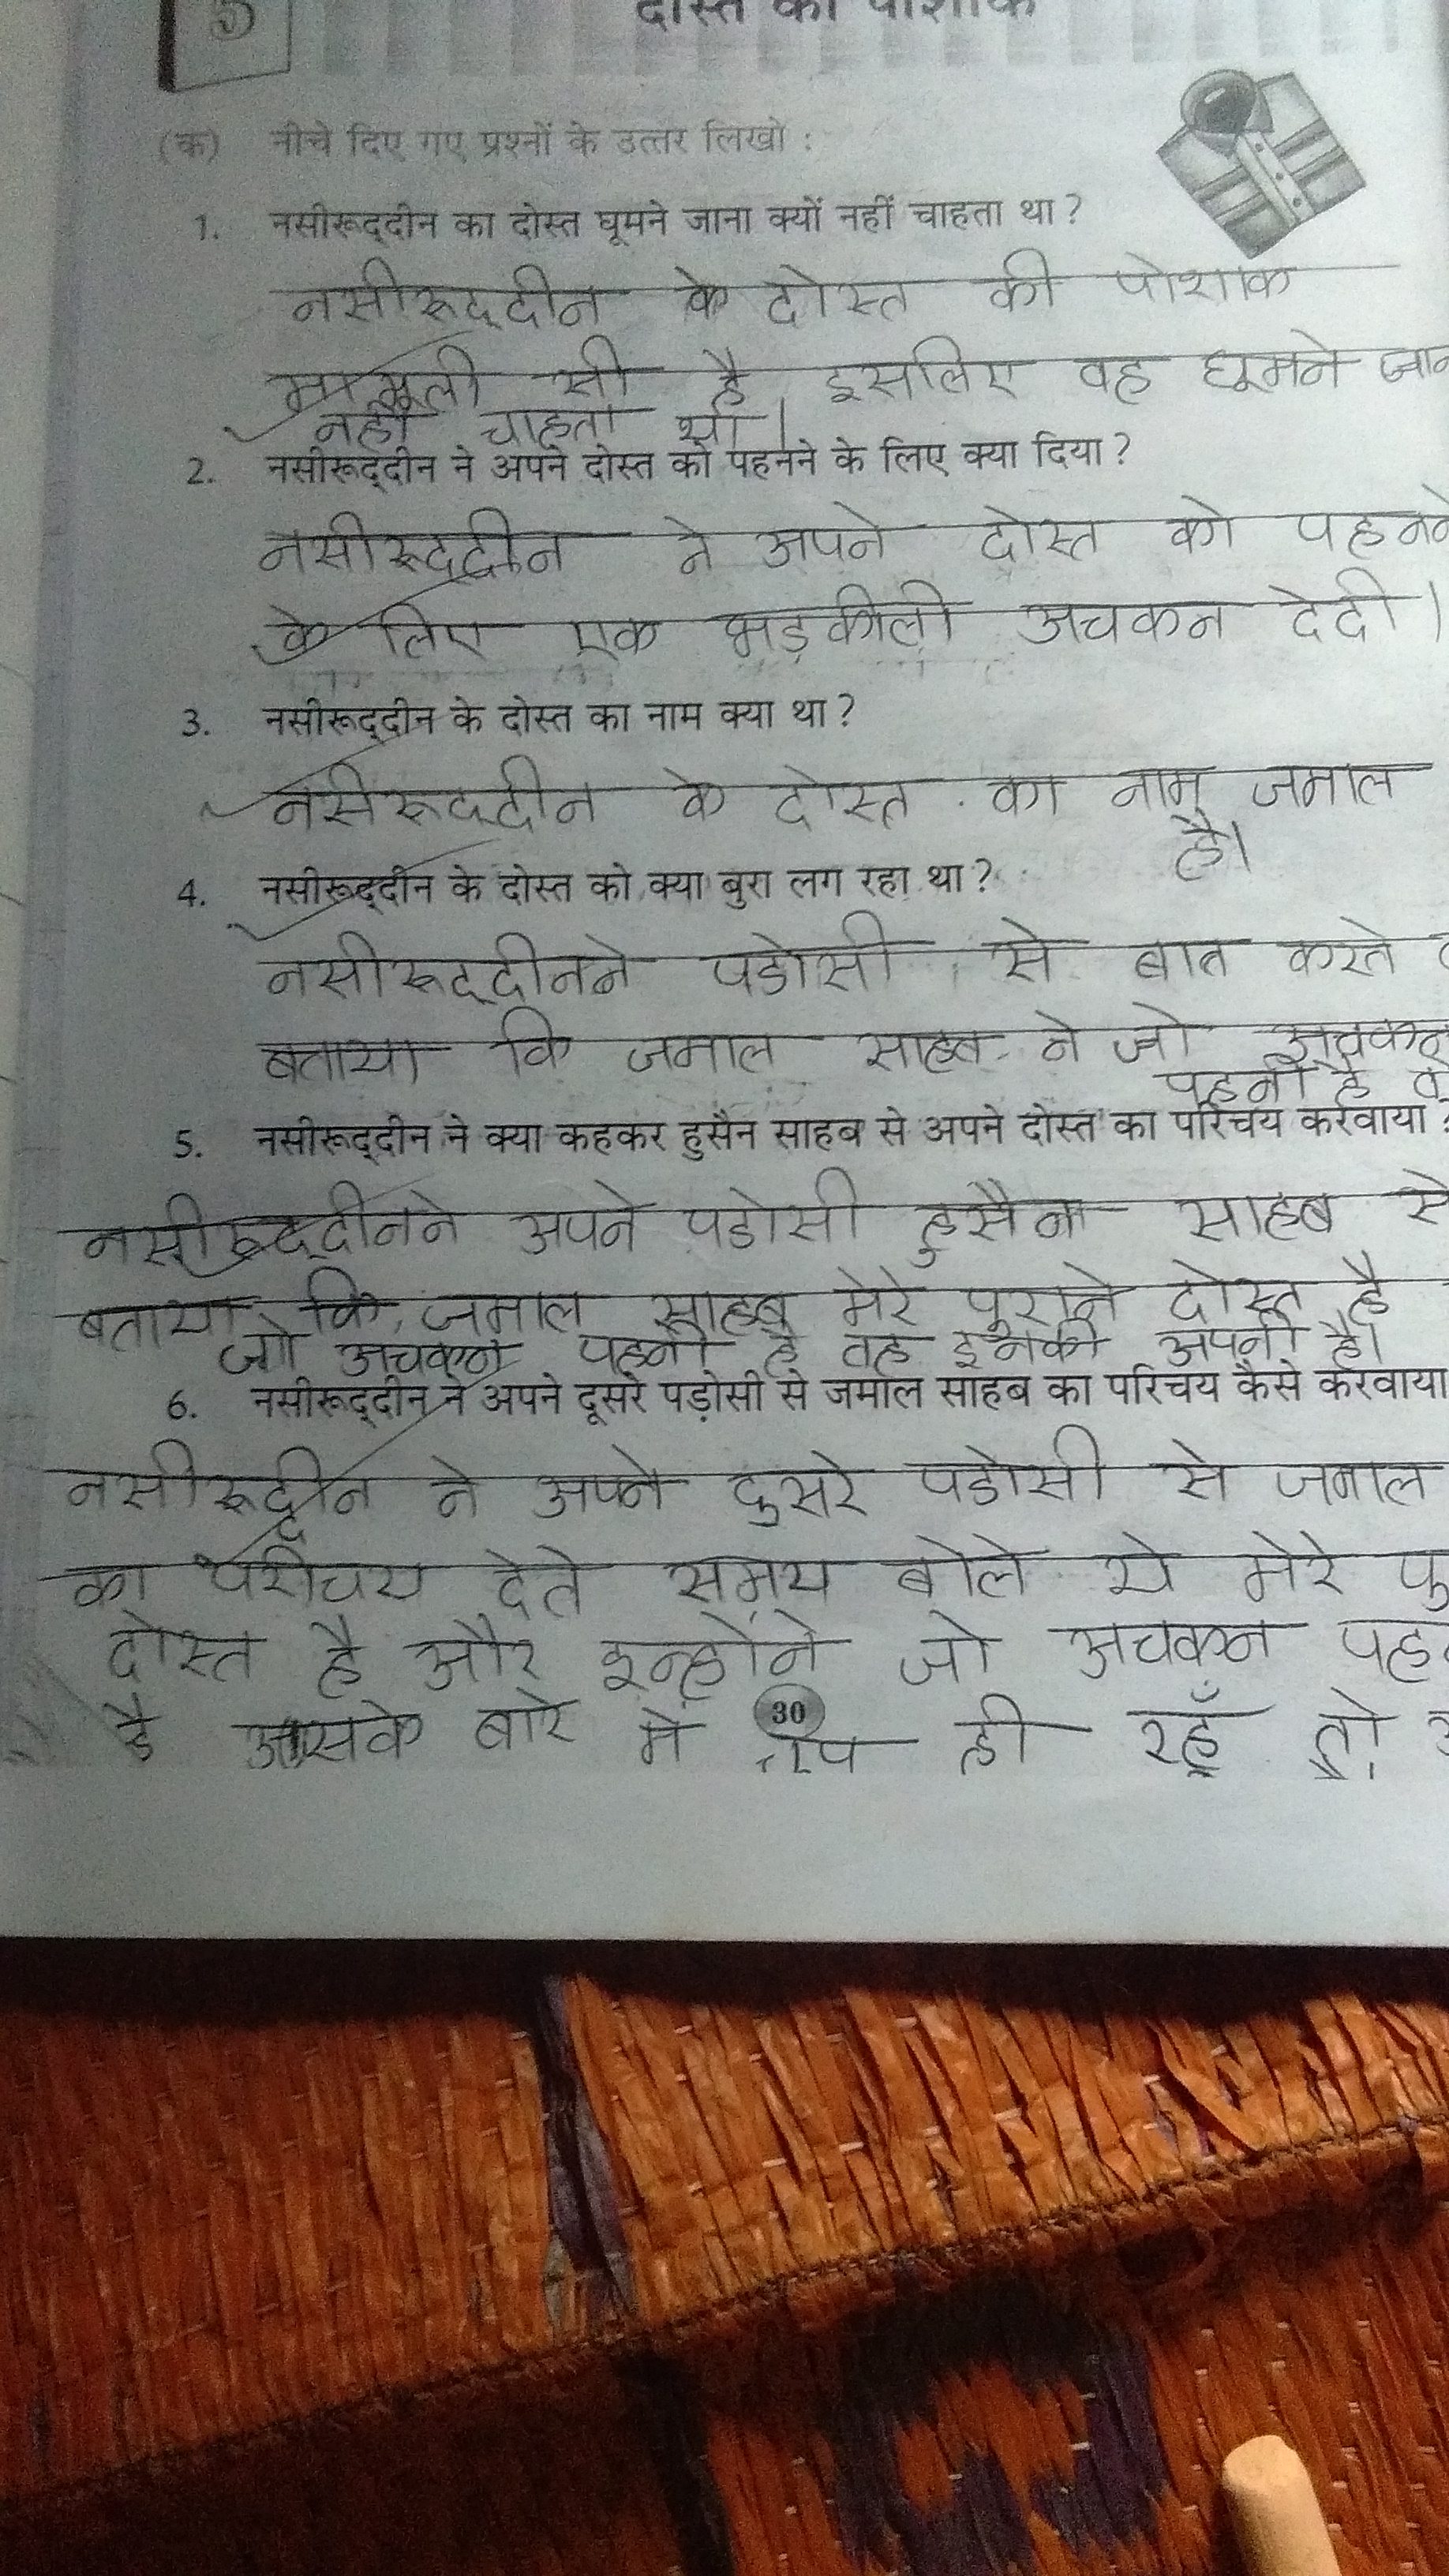 5
दोस्त की पोशाक
(क) नीचे दिए गए प्रश्नों के उत्तर लिखो :
1. नसीरूद्दीन का दोस्त घूमने जाना क्यों नहीं चाहता था ?
नसीरूद्दीन के दोस्त की पोशाक
मामूली सी है इसलिए वह घूमने जान
नहीं चाहता था।
2. नसीरूद्दीन ने अपने दोस्त को पहनने के लिए क्या दिया ?
नसीरूद्दीन ने अपने दोस्त को पहनने
के लिए एक भड़कीली अचकन देदी।
3. नसीरूद्दीन के दोस्त का नाम क्या था ?
नसीरूद्दीन के दोस्त का नाम जमाल
है।
4. नसीरूद्दीन के दोस्त को क्या बुरा लग रहा था ?
नसीरूद्दीनने पडोसी से बात करते
बताया कि जमाल साहब ने जो अचकन
पहनी है
5. नसीरूद्दीन ने क्या कहकर हुसैन साहब से अपने दोस्त का परिचय करवाया ?
नसीरूद्दीनने अपने पडोसी हुसैन साहब से
बताया कि जमाल साहब मेरे पुराने दोस्त है
जो अचकन पहनी है वह इनकी अपनी है।
6. नसीरूद्दीन ने अपने दूसरे पड़ोसी से जमाल साहब का परिचय कैसे करवाया
नसीरूद्दीन ने अपने दुसरे पडोसी से जमाल
का परीचय देते समय बोले ये मेरे पु
दोस्त है और इन्होंने जो अचकन पह
है उसके बारे में चुप ही रहूँ तो
30